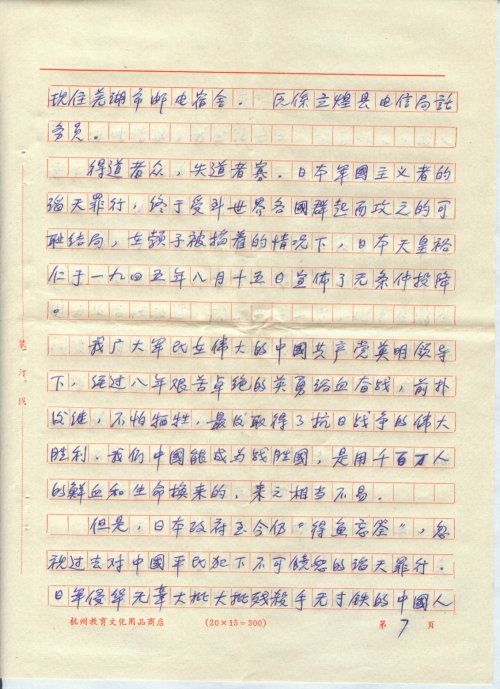 现住芜湖市邮电宿舍. 反保立煌县电信局話
务员.
得道者众，失道者寡. 日本军國主义者的
滔天罪行，终于受到世界各國群起而攻之的可
耻结局，在颈子被掐着的情况下，日本天皇裕
仁于一九四五年八月十五日宣佈了无条件投降
。
我广大军民在伟大的中國共产党英明领导
下，经过八年艰苦卓绝的英勇浴血奋战，前扑
后继，不怕牺牲，最后取得了抗日战争的偉大
胜利. 我们中國能成为战胜國，是用千百万人
的鲜血和生命换来的，来之相当不易.
但是，日本政府至今仍“得鱼忘筌”，忽
视过去对中國平民犯下不可饶恕的滔天罪行.
日军侵华无辜大批大批残殺手无寸铁的中國人
装 订 线
杭州教育文化用品商店 (20×15=300) 第 7 页